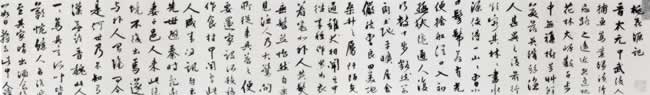 桃花源記
晉太元中武陵人
捕魚為業緣溪行
忘路之遠近忽逢桃
花林夾岸數百步
中無雜樹芳草鮮
美落英繽紛漁
人甚異之復前行
欲窮其林林盡水
源便得一山山有小
口髣髴若有光
便捨船從口入初
極狹纔通人復行
數十步豁然開
朗土地平曠屋舍
儼然有良田美池
桑竹之屬阡陌交
通雞犬相聞其中
往來種作男女衣
著悉如外人黃髮
垂髫並怡然自樂
見漁人乃大驚問
所從來具答之便
要還家設酒殺雞
作食村中聞有此
人咸來問訊自云
先世避秦時亂率
妻子邑人來此絕
境不復出焉遂
與外人間隔問今
是何世乃不知有
漢無論魏晉此人
一一為具言所聞皆
歎惋餘人各復